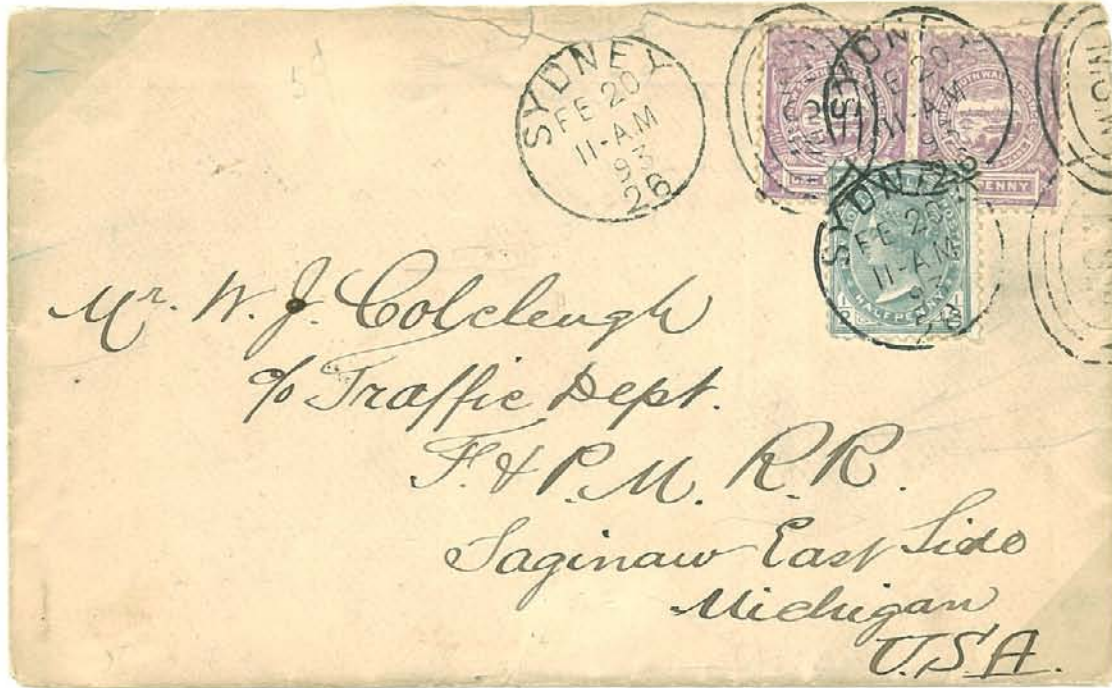 5d
SYDNEY
FE 20
11-AM
93
26
SYDNEY
FE 20
11-AM
93
26
PENNY
SYDNEY
FE 20
11-AM
93
26
HALFPENNY
N.S.W
Mr. W. J. Colcleugh
c/o Traffic Dept.
F. & P. M. R. R.
Saginaw East Side
Michigan
U.S.A.